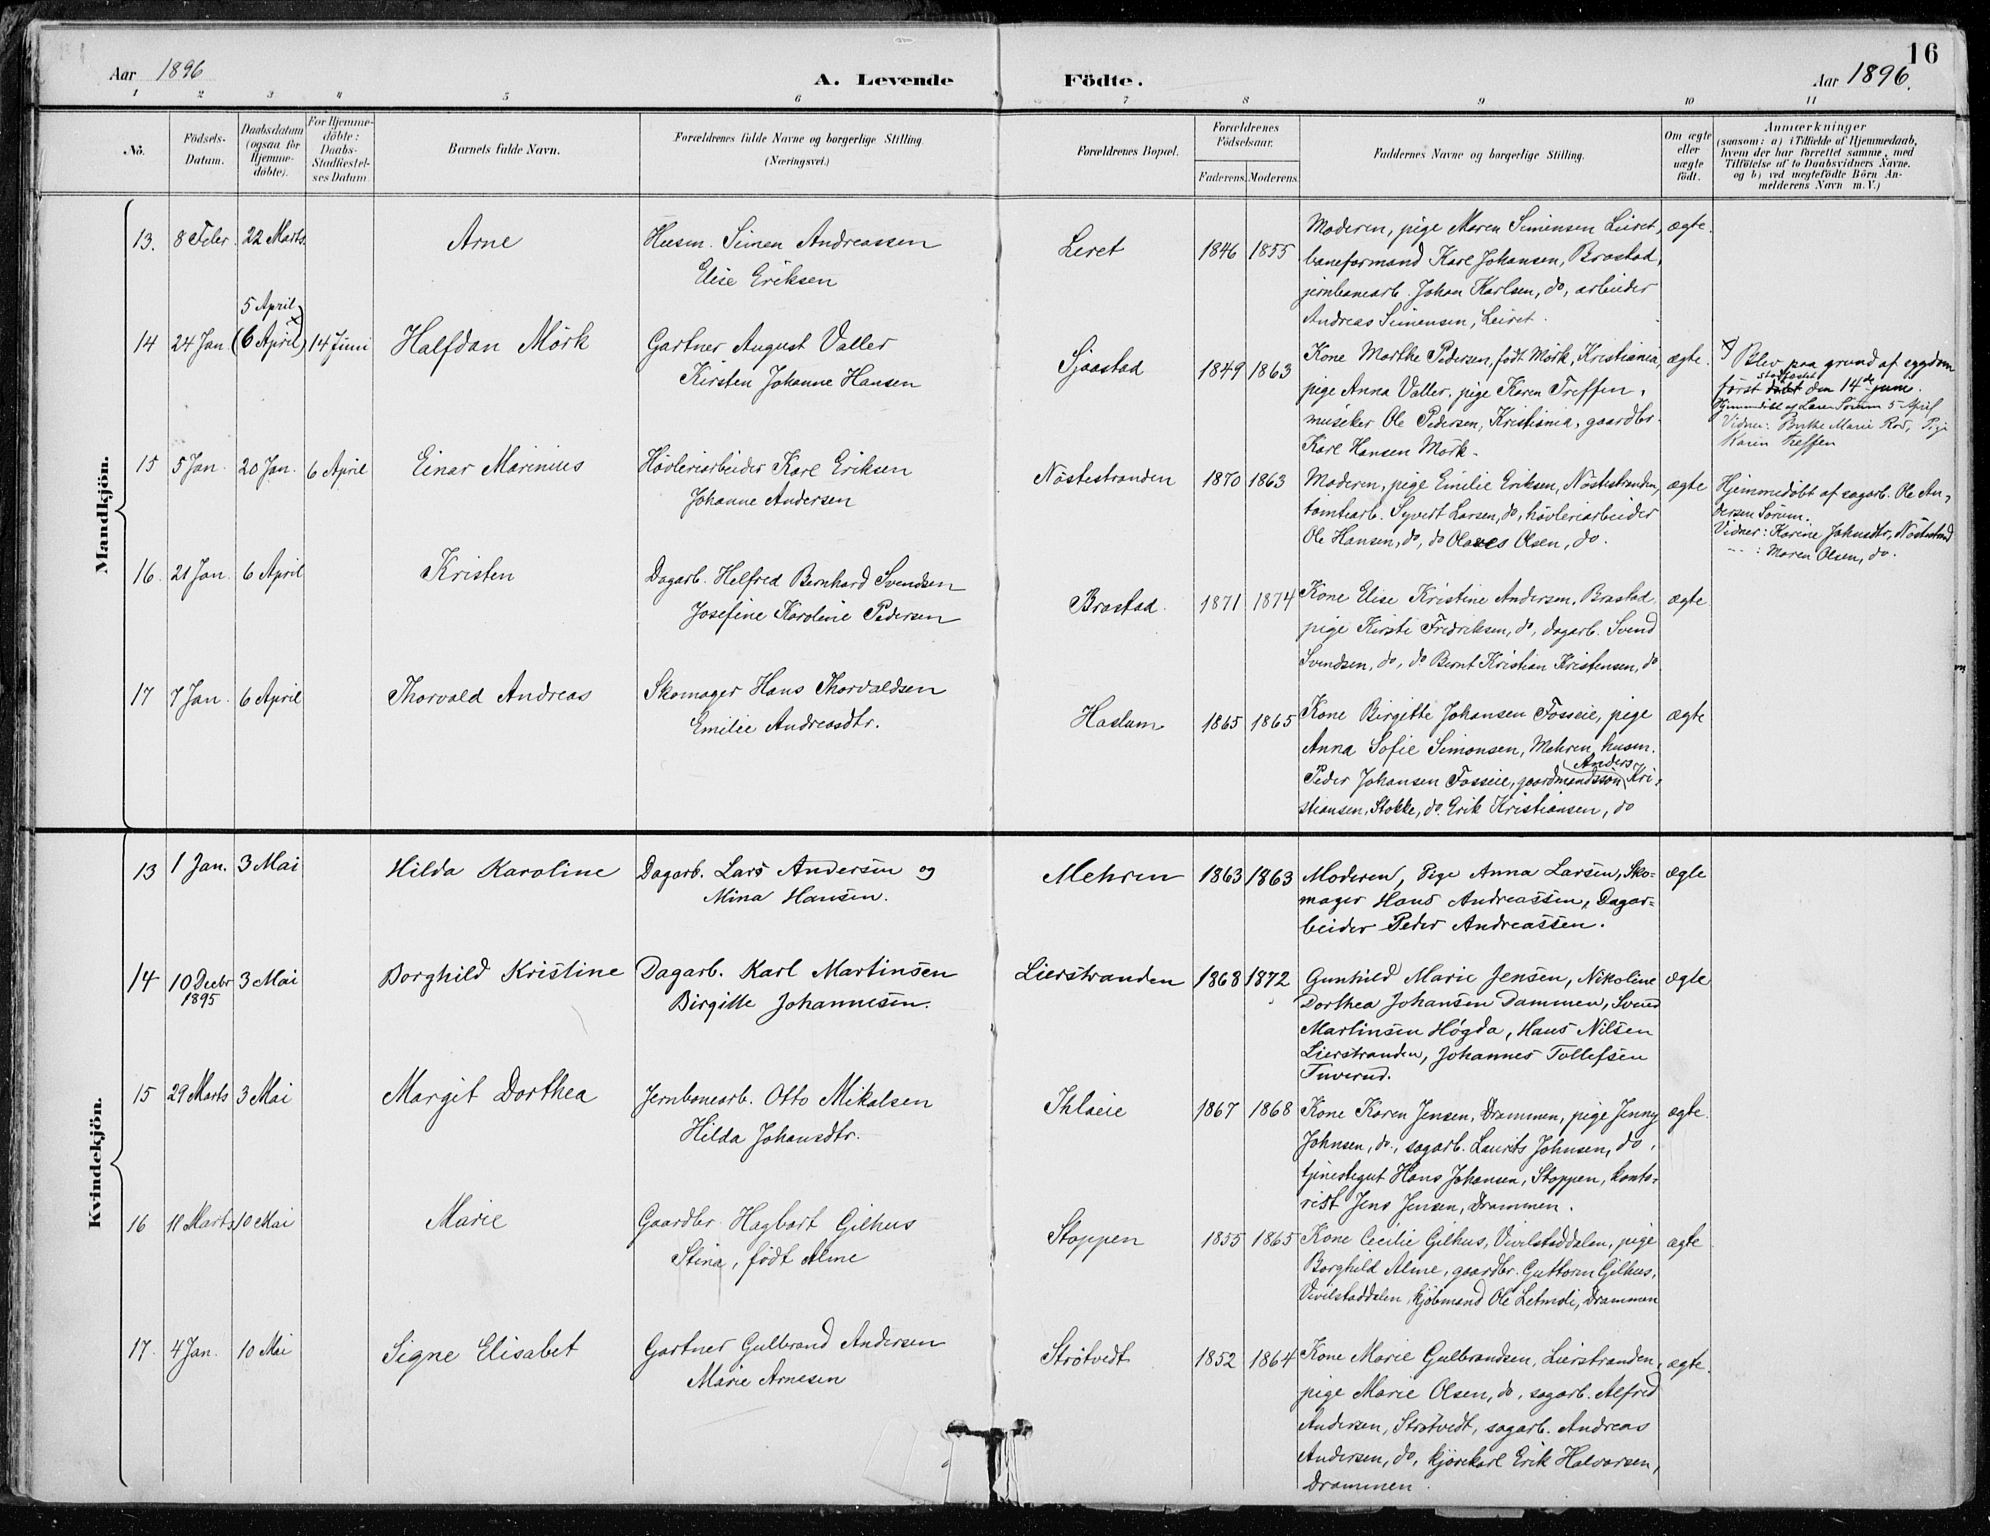 16
Aar 1896
A. Levende
Födte.
Aar 1896.
1 2 3 4 5 6 7 8 9 10 11
No.
Födsels-
Datum.
Daabsdatum
(ogsaa for
Hjemme-
döbte).
For Hjemme-
döbte:
Daabs-
Stadfæstel-
ses Datum
Barnets fulde Navn.
Forældrenes fulde Navne og borgerlige Stilling
(Næringsvei.)
Forældrenes Bopæl.
Forældrenes
Födselsaar.
Faderens. Moderens.
Faddernes Navne og borgerlige Stilling.
Om ægte
eller
uægte
födt.
Anmærkninger
(saasom: a) i Tilfælde af Hjemmedaab,
hvem der har forrettet samme, med
Tilföielse af to Daabsvidners Navne.
og b) ved uægtefödte Börn An-
melderens Navn m. V.)
Mandkjön.
13. 8 Febr. 22 Marts.
Arne
Husm. Simen Andreassen
Elise Eriksen
Leret
1846 1855
Moderen, pige Maren Simensen Leiret,
baneformand Karl Johansen, Brastad,
jernbanearb. Johan Karlsen, do, arbeider
Andreas Simensen, Leiret.
ægte.
5 April
14 24 Jan (6 April) 14 Juni
Halfdan Mörk
Gartner August Valler
Kirsten Johanne Hansen
Sjaastad
1849 1863
Kone Marthe Pedersen, født Mörk, Kristiania,
pige Anna Valler, pige Karen Treffen,
musiker Ole Pedersen, Kristiania, gaardbr.
Karl Hansen Mörk.
ægte.
x) Blev paa grund af sygdom
stadfæstet
först döbt den 14de juni.
Hjemmedöbt af Søren 5 April
Vidner: Berthe Marie Rød, Pige
Karin Treffen
15 5 Jan. 20 Jan. 6 April
Einar Marinius
Hövleriarbeider Karl Eriksen
Johanne Andersen
Nöstestranden
1870 1863
Moderen, pige Emilie Eriksen, Nöstestranden,
tomtearb. Syvert Larsen, do, hövleriarbeider
Ole Hansen, do, do Olaves Olsen, do.
ægte
Hjemmedöbt af sagarb. Ole An-
dersen Sörum.
Vidner: Karine Johnsdtr, Nöstestrand
--- : Maren Olsen, do.
16. 21 Jan. 6 April
Kristen
Dagarb. Helfred Bernhard Svendsen
Josefine Karoline Pedersen
Brastad.
1871 1874
Kone Elise Kristine Andersen, Brastad,
pige Kirsti Fredriksen, do, dagarb. Svend
Svendsen, do, do Bernt Kristian Kristensen, do
ægte
17 7 Jan. 6 April
Thorvald Andreas
Skomager Hans Thorvaldsen
Emilie Andreasdtr.
Haslum
1865 1865
Kone Birgitte Johansen Fosseie, pige
Anna Sofie Simonsen, Mehren, husm.
Anders
Peder Johansen Fosseie, gaardmandssön Kri-
stiansen, Stokke, do. Erik Kristiansen, do
ægte
Kvindekjön.
13 1 Jan. 3 Mai
Hilda Karoline
Dagarb. Lars Andersen og
Mina Hansen.
Mehren
1863 1863
Moderen, Pige Anna Larsen, Sko-
mager Hans Andreassen, Dagar-
beider Peder Andreassen.
ægte
14 10 Decbr 3 Mai
1895
Borghild Kristine
Dagarb. Karl Martinsen
Birgitte Johannesen.
Lierstranden
1868 1872
Gunhild Marie Jensen, Nikoline
Dorthea Johansen Dammen, Svend
Martinsen Høgda, Hans Nilsen
Lierstranden, Johannes Tollefsen
Tuverud.
ægte
15 29 Marts 3 Mai
Margit Dorthea
Jernbanearb. Otto Mikalsen
Hilda Johansdtr.
Ihlaeie
1867 1868
Kone Karen Jensen, Drammen, pige Jenny
Johnsen, do., sagarb. Laurits Johnsen, do,
tjenestegut Hans Johansen, Stoppen, konto-
rist Jens Jensen, Drammen.
ægte.
16 11 Marts 10 Mai
Marie
Gaardbr. Hagbart Gilhus
Stina, födt Alme
Stoppen
1855 1865
Kone Cecilie Gilhus, Vivilstaddalen, pige
Borghild Alme, gaardbr. Guttorm Gilhus,
Vivilstaddalen, kjöbmand Ole Letmoli, Drammen
ægte
17. 4 Jan. 10 Mai
Signe Elisabet
Gartner Gulbrand Andersen
Marie Arnesen
Strötvedt
1852 1864
Kone Marie Gulbrandsen, Lierstranden,
pige Marie Olsen, do, sagarb. Alfred
Andersen, Strötvedt, sagarb. Andreas
Andersen, do, kjörekarl Erik Halvorsen,
Drammen.
ægte.